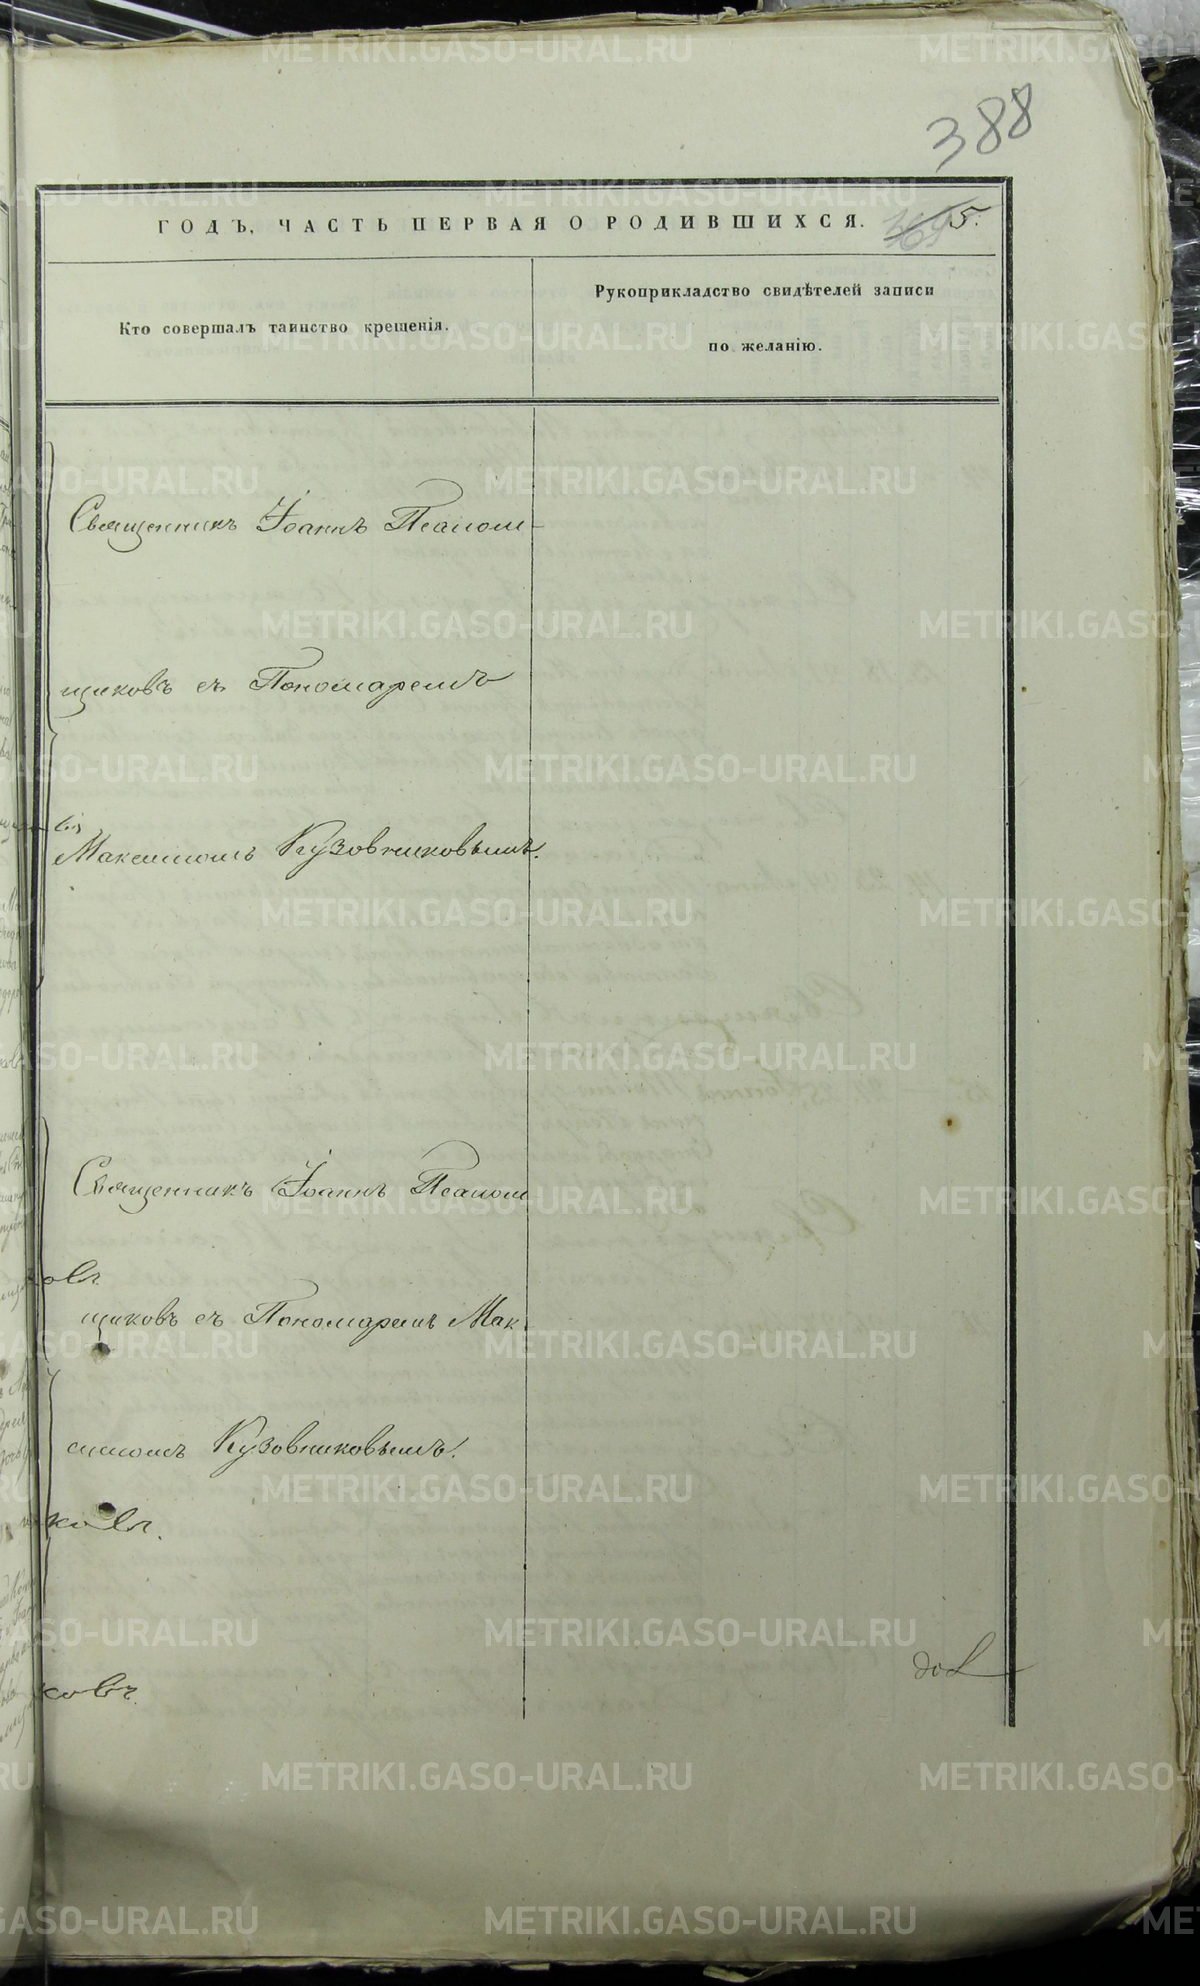 388
ГОДЪ, ЧАСТЬ ПЕРВАЯ О РОДИВШИХСЯ. 5.
Кто совершалъ таинство крещенія.
Рукоприкладство свидѣтелей записи
по желанію.
Священникъ Іоаннъ Псалом-
щиковъ съ Пономаремъ
Максимомъ Кузовниковымъ.
Священникъ Іоаннъ Псалом
щиковъ съ Пономаремъ Мак-
симомъ Кузовниковымъ.
ковъ.
ковъ.
METRIKI.GASO-URAL.RU